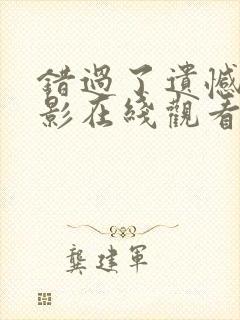 錯過了遺憾
影在綫觀看
龔建軍